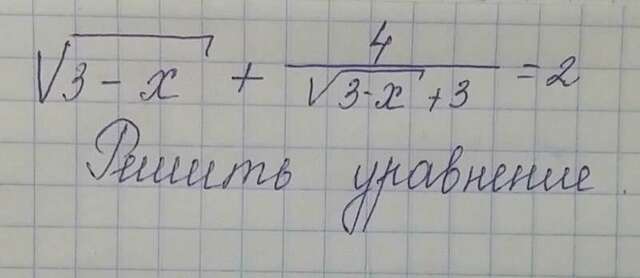 √(3 - x) + 4/(√(3-x) + 3) = 2
Решить уравнение.